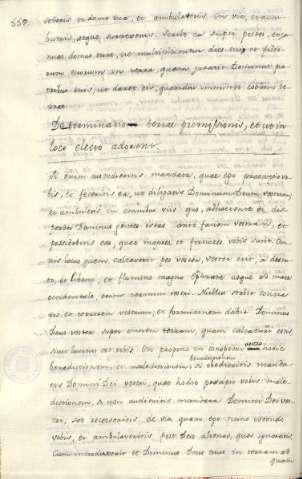 sederis in domo tua, et ambulaveris in via, et accu
bueris, atque surrexeris. Scribes ea super postes, et ja
nuas domus tuae, ut multiplicentur dies tui, et filio
rum tuorum in terra, quam juravit Dominus pa
tribus tuis, ut daret eis, quamdiu imminet coelum te
rrae.
terrae promissionis, et ut in
loco electo adorent.
Si enim custodieritis mandata, quae ego praecipio vo
bis, et feceritis ea, ut diligatis Dominum Deum vestrum,
et ambuletis in omnibus viis ejus, adhaerentes ei, dis
perdet Dominus gentes istas ante faciem vestram, et
possidebitis eas, quae majores et fortiores vobis sunt. Om
nis locus, quem calcaverit pes vester, vester erit. A deser
to, et Libano, et flumine magno Euphrate usque ad mare
occidentale, erunt termini vestri. Nullus stabit contra
vos, et terrorem vestrum, et formidinem dabit Dominus
Deus vester super omnem terram, quam calcaturi estis
sicut locutus est vobis. En propono in conspectu vestro hodie
benedictionem, et maledictionem,
benedictionem
si obedieritis manda
tis Domini Dei vestri, quae hodie praecipio vobis: male
dictionem, si non audieritis mandata Domini Dei ves
tri, sed recesseritis de via, quam ego nunc ostendo
vobis, et ambulaveritis post deos alienos, quos ignoratis.
Cum introduxerit te Dominus Deus tuus in terram ad
quam